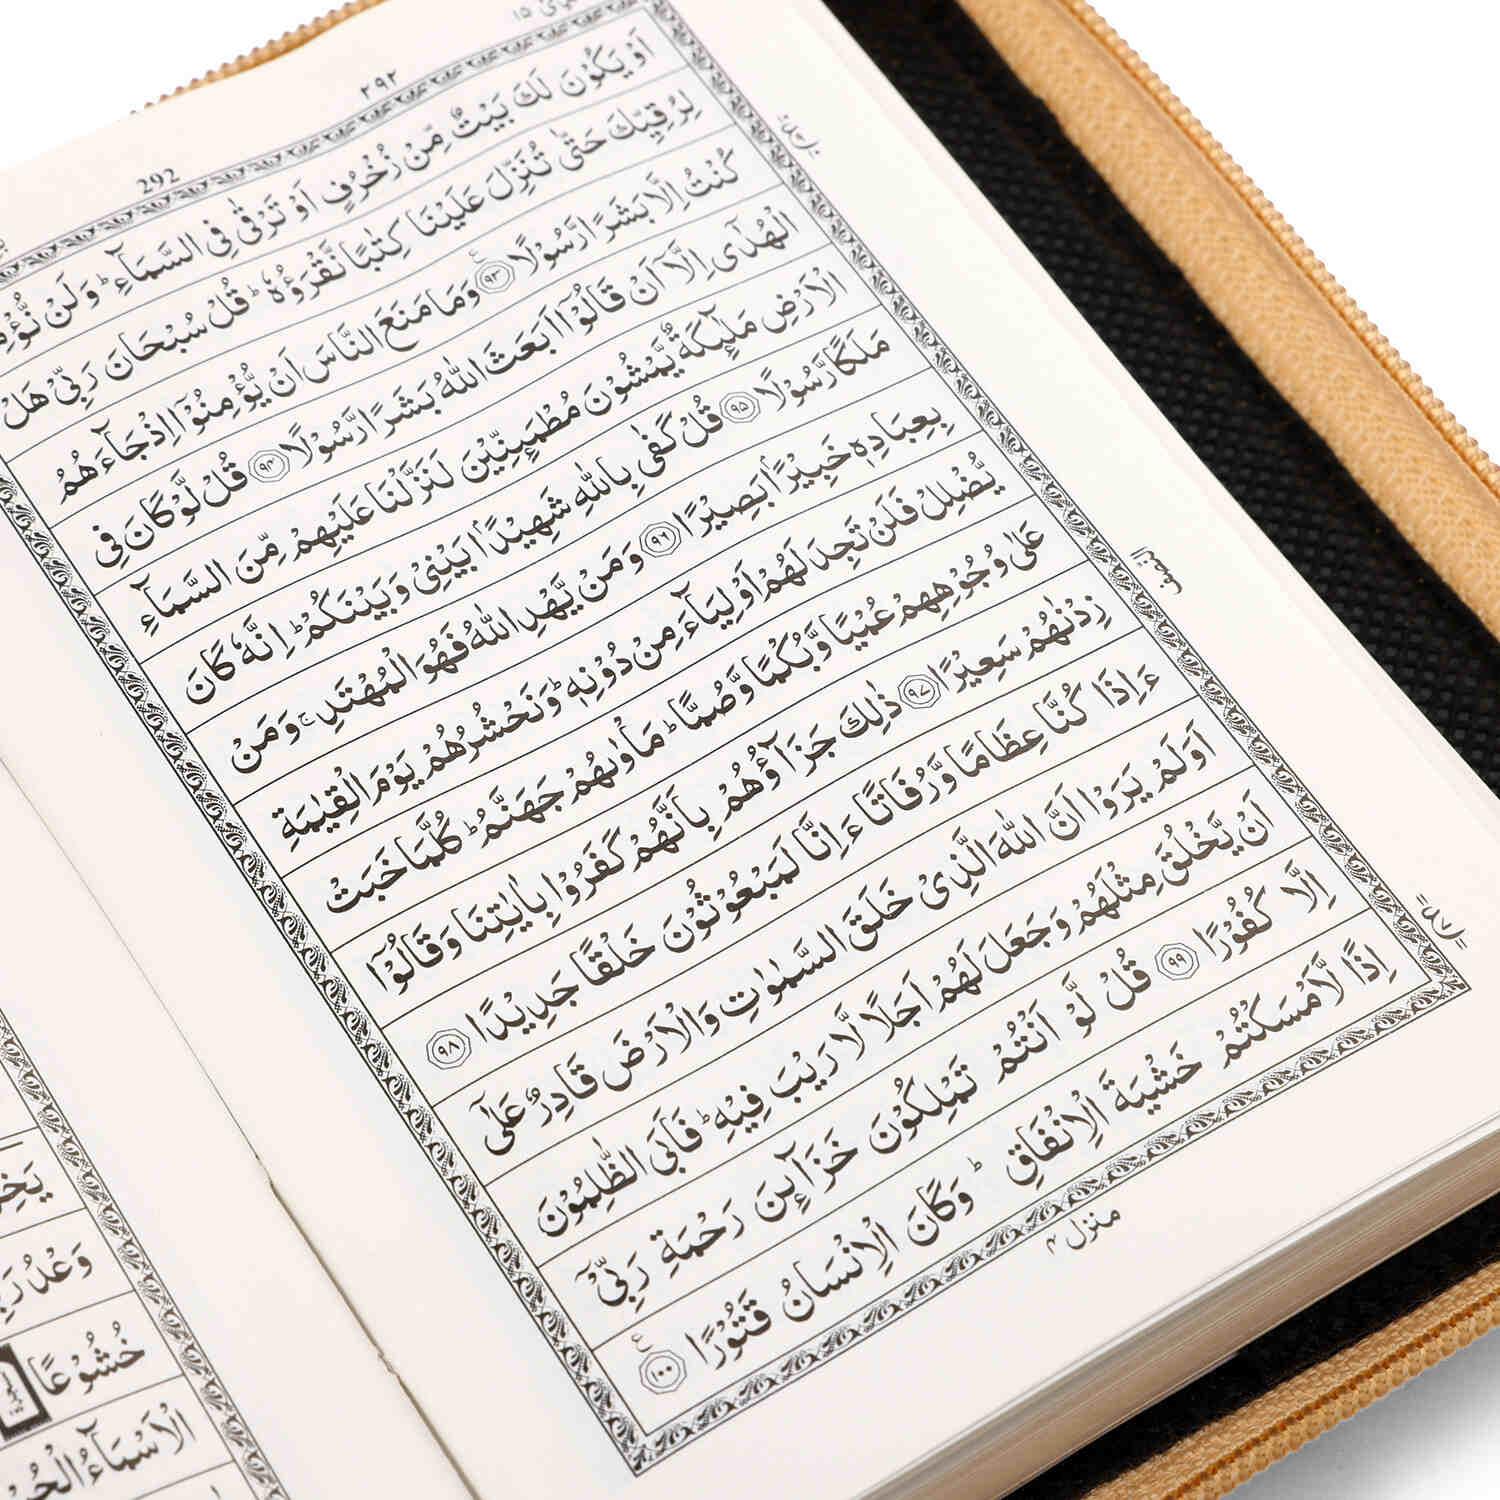 ٢٩٢
292
اَوْ يَكُوْنَ لَكَ بَيْتٌ مِّنْ زُخْرُفٍ اَوْ تَرْقٰى فِى السَّمَآءِ ؕ وَلَنْ
لِرُقِيِّكَ حَتّٰى تُنَزِّلَ عَلَيْنَا كِتٰبًا نَّقْرَؤُهٗ ؕ قُلْ سُبْحَانَ رَبِّىْ هَلْ
كُنْتُ اِلَّا بَشَرًا رَّسُوْلًا ﴿٩٣﴾ وَمَا مَنَعَ النَّاسَ اَنْ يُّؤْمِنُوْۤا اِذْ جَآءَهُمُ
الْهُدٰٓى اِلَّاۤ اَنْ قَالُوْۤا اَبَعَثَ اللّٰهُ بَشَرًا رَّسُوْلًا ﴿٩٤﴾ قُلْ لَّوْ كَانَ فِى
الْاَرْضِ مَلٰٓئِكَةٌ يَّمْشُوْنَ مُطْمَئِنِّيْنَ لَنَزَّلْنَا عَلَيْهِمْ مِّنَ السَّمَآءِ
مَلَكًا رَّسُوْلًا ﴿٩٥﴾ قُلْ كَفٰى بِاللّٰهِ شَهِيْدًۢا بَيْنِىْ وَبَيْنَكُمْ ؕ اِنَّهٗ كَانَ
بِعِبَادِهٖ خَبِيْرًۢا بَصِيْرًا ﴿٩٦﴾ وَمَنْ يَّهْدِ اللّٰهُ فَهُوَ الْمُهْتَدِ ۚ وَمَنْ
يُّضْلِلْ فَلَنْ تَجِدَ لَهُمْ اَوْلِيَآءَ مِنْ دُوْنِهٖ ؕ وَنَحْشُرُهُمْ يَوْمَ الْقِيٰمَةِ
عَلٰى وُجُوْهِهِمْ عُمْيًا وَّبُكْمًا وَّصُمًّا ؕ مَاْوٰىهُمْ جَهَنَّمُ ؕ كُلَّمَا خَبَتْ
زِدْنٰهُمْ سَعِيْرًا ﴿٩٧﴾ ذٰلِكَ جَزَآؤُهُمْ بِاَنَّهُمْ كَفَرُوْا بِاٰيٰتِنَا وَقَالُوْۤا
ءَاِذَا كُنَّا عِظَامًا وَّرُفَاتًا ءَاِنَّا لَمَبْعُوْثُوْنَ خَلْقًا جَدِيْدًا ﴿٩٨﴾
اَوَلَمْ يَرَوْا اَنَّ اللّٰهَ الَّذِىْ خَلَقَ السَّمٰوٰتِ وَالْاَرْضَ قَادِرٌ عَلٰٓى
اَنْ يَّخْلُقَ مِثْلَهُمْ وَجَعَلَ لَهُمْ اَجَلًا لَّا رَيْبَ فِيْهِ ؕ فَاَبَى الظّٰلِمُوْنَ
اِلَّا كُفُوْرًا ﴿٩٩﴾ قُلْ لَّوْ اَنْتُمْ تَمْلِكُوْنَ خَزَآئِنَ رَحْمَةِ رَبِّىْۤ
اِذًا لَّاَمْسَكْتُمْ خَشْيَةَ الْاِنْفَاقِ ؕ وَكَانَ الْاِنْسَانُ قَتُوْرًا ﴿١٠٠﴾
النصف
منزل ٤
وَعْدُ
خُشُوْعًا
الْاَسْمَآءُ